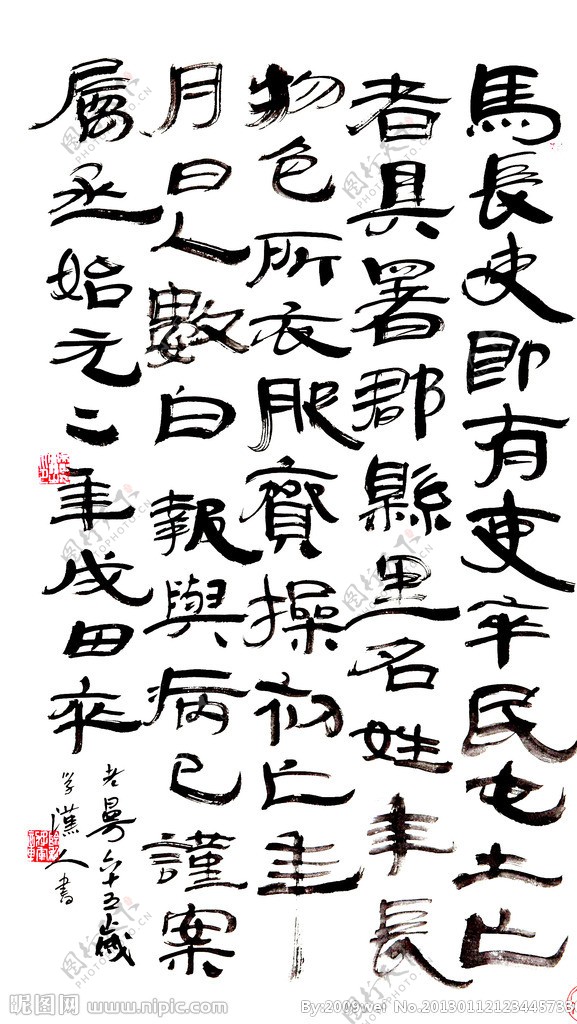 馬長吏即有吏卒民屯士亡
者具署郡縣里名姓年長
物色所衣服齎操初亡年
月日人數白報與病已謹案
屬丞始元二年戍田卒
老曼六十五歲
学漢人書
昵图网 www.nipic.com
By:2009wei No.20130112123445733